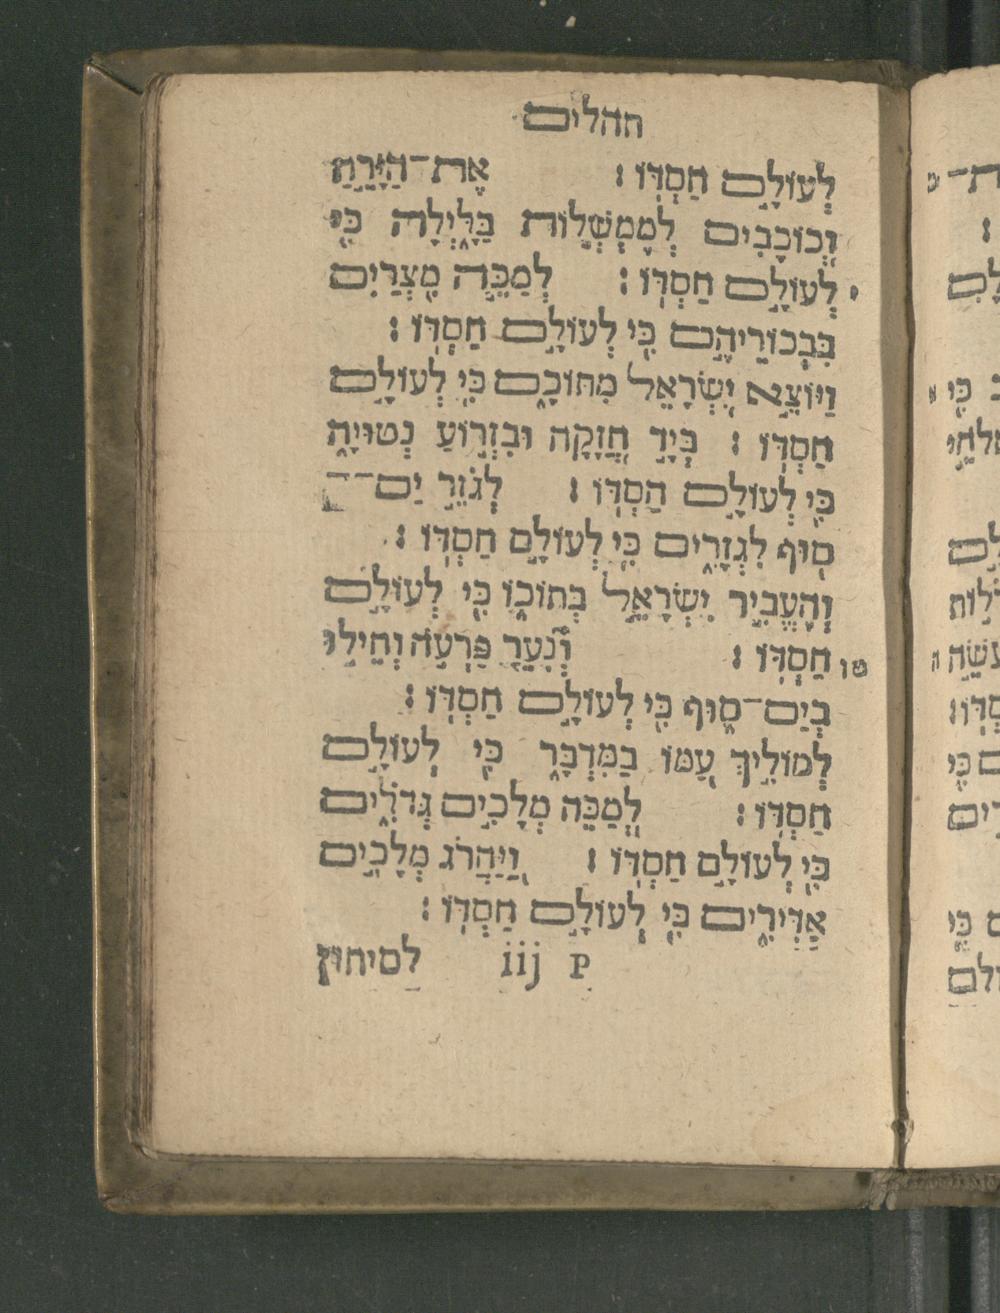 תהלים
לְעוֹלָם חַסְדּוֹ׃ אֶת־הַיָּרֵחַ
וְכוֹכָבִים לְמֶמְשְׁלוֹת בַּלָּיְלָה כִּי
י לְעוֹלָם חַסְדּוֹ׃ לְמַכֵּה מִצְרַיִם
בִּבְכוֹרֵיהֶם כִּי לְעוֹלָם חַסְדּוֹ׃
וַיּוֹצֵא יִשְׂרָאֵל מִתּוֹכָם כִּי לְעוֹלָם
חַסְדּוֹ׃ בְּיָד חֲזָקָה וּבִזְרוֹעַ נְטוּיָה
כִּי לְעוֹלָם חַסְדּוֹ׃ לְגֹזֵר יַם־־
סוּף לִגְזָרִים כִּי לְעוֹלָם חַסְדּוֹ׃
וְהֶעֱבִיר יִשְׂרָאֵל בְּתוֹכוֹ כִּי לְעוֹלָם
טו חַסְדּוֹ׃ וְנִעֵר פַּרְעֹה וְחֵילוֹ
בְיַם־סוּף כִּי לְעוֹלָם חַסְדּוֹ׃
לְמוֹלִיךְ עַמּוֹ בַּמִּדְבָּר כִּי לְעוֹלָם
חַסְדּוֹ׃ לְמַכֵּה מְלָכִים גְּדֹלִים
כִּי לְעוֹלָם חַסְדּוֹ׃ וַיַּהֲרֹג מְלָכִים
אַדִּירִים כִּי לְעוֹלָם חַסְדּוֹ׃
P iij לסיחון